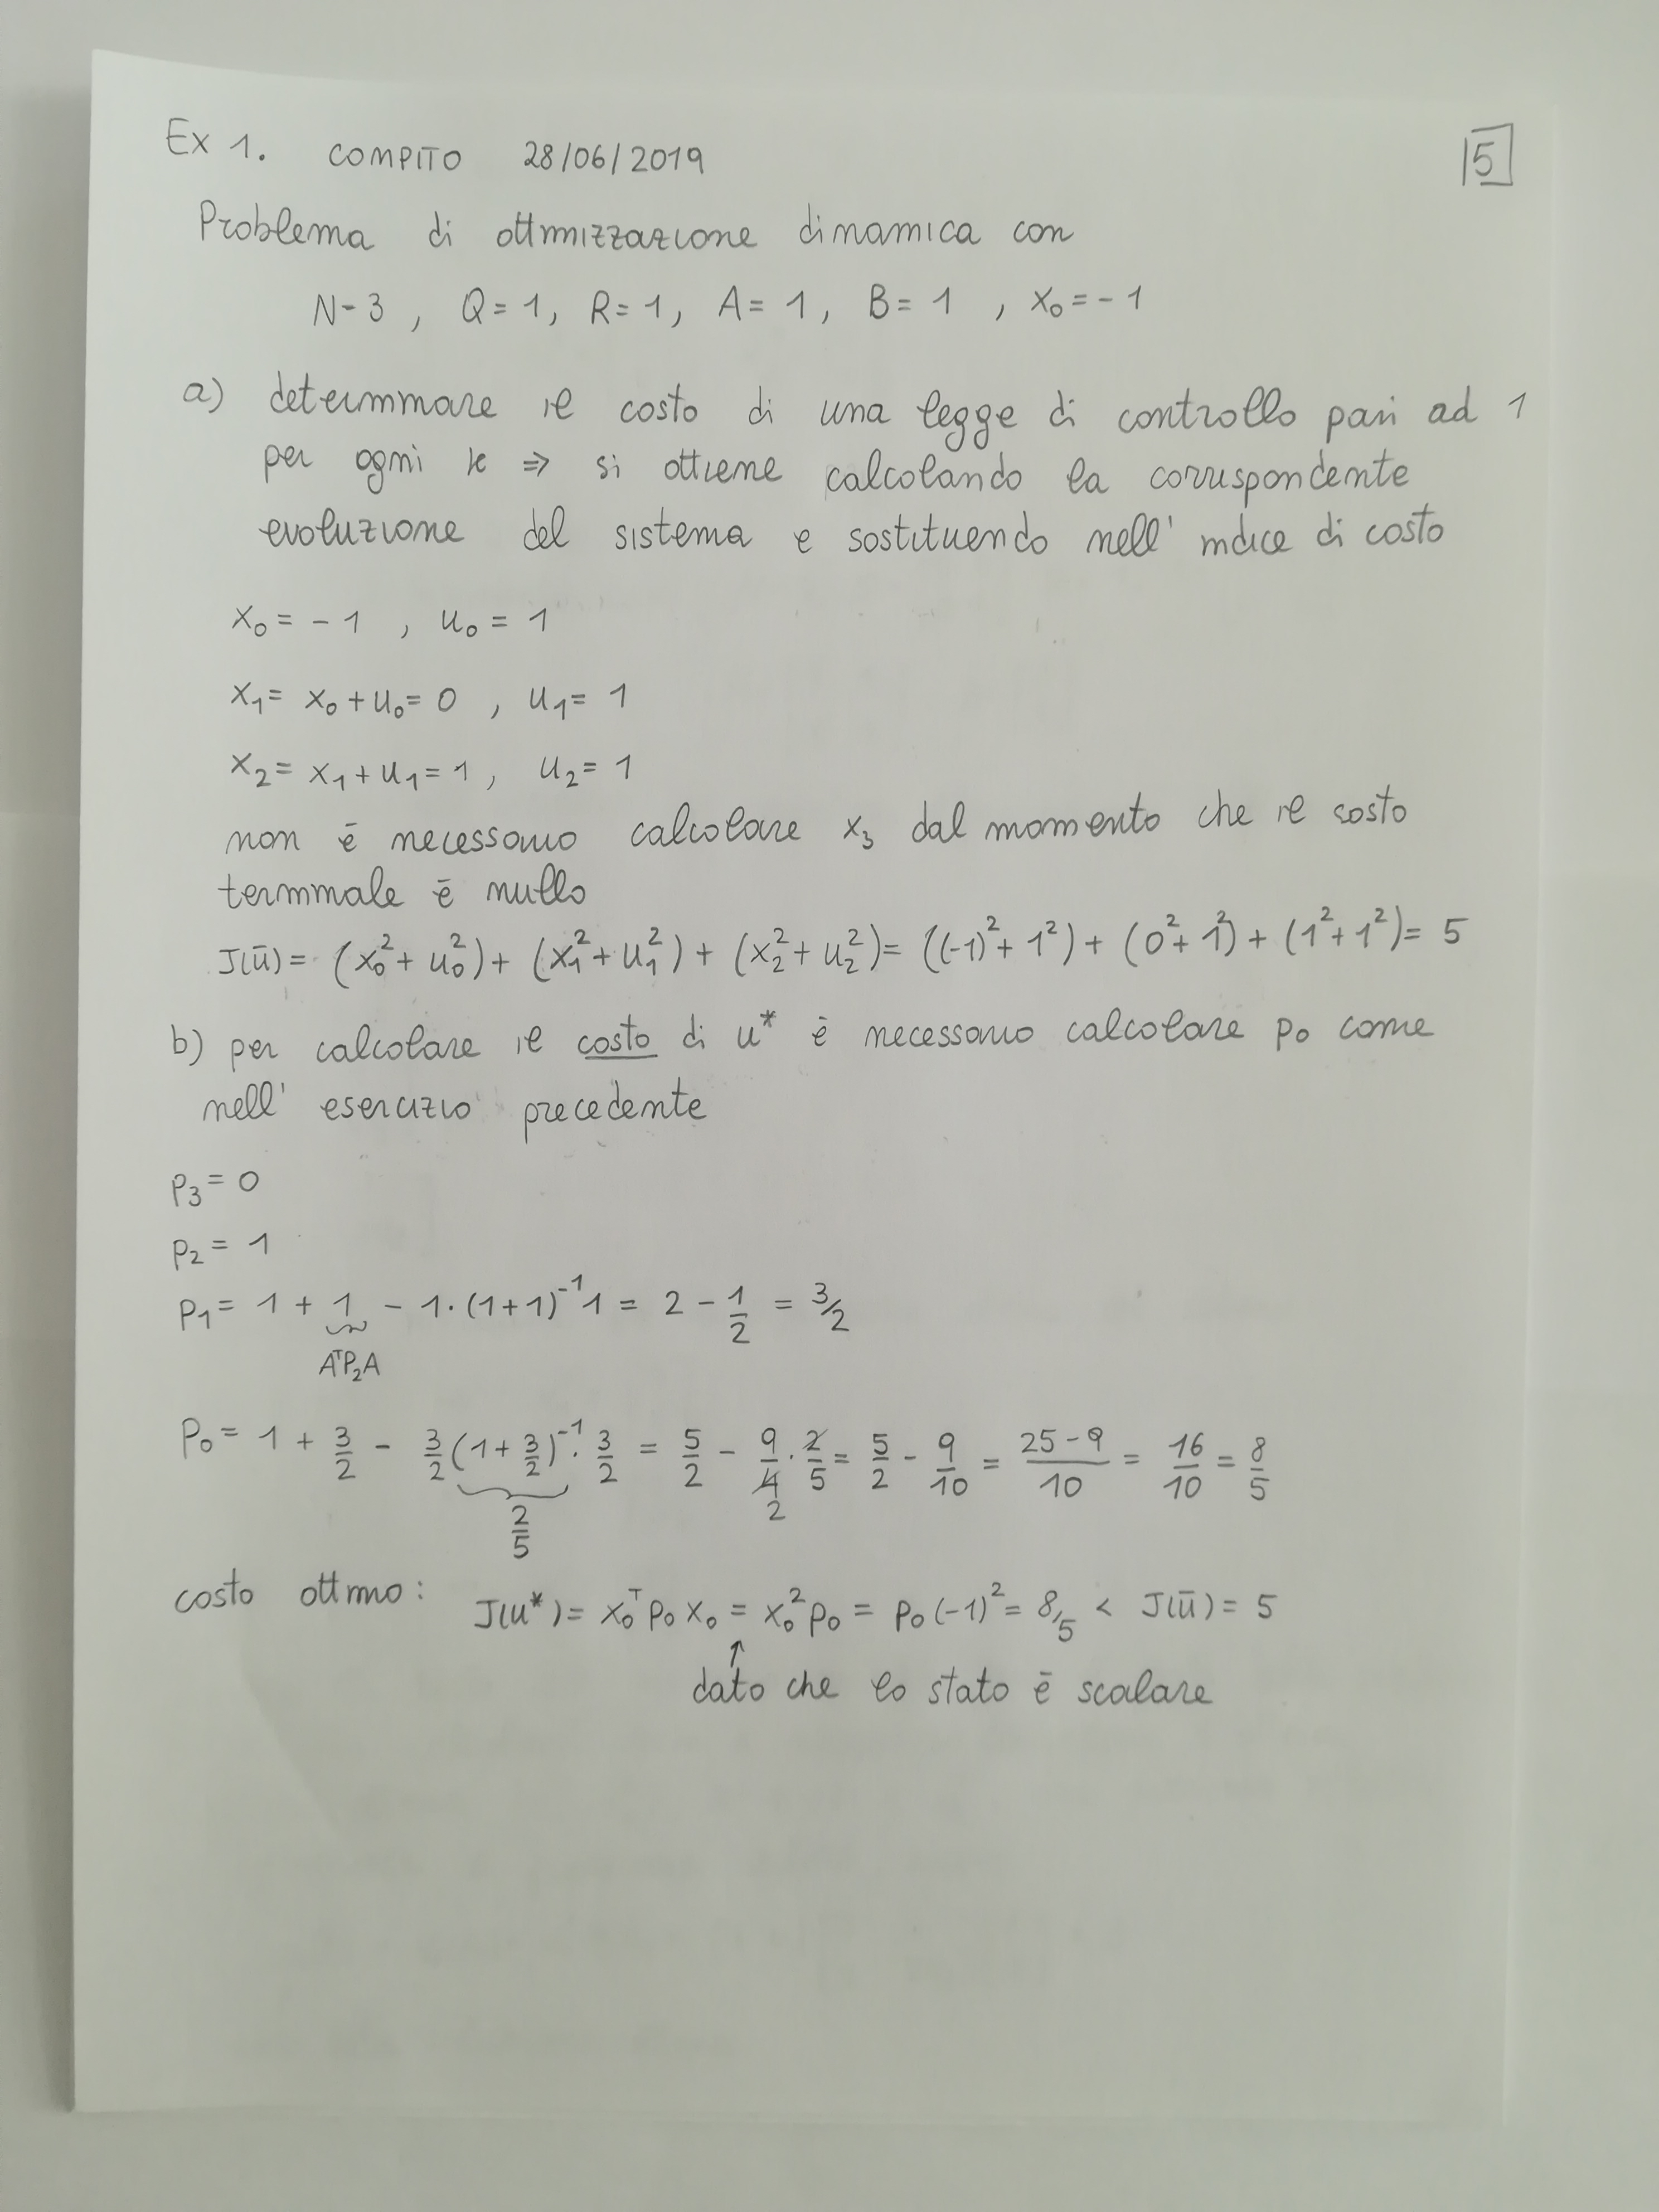 Ex 1. COMPITO 28/06/2019
5
Problema di ottimizzazione dinamica con
N=3, Q=1, R=1, A=1, B=1, x₀=-1
a) determinare il costo di una legge di controllo pari ad 1
per ogni k ⇒ si ottiene calcolando la corrispondente
evoluzione del sistema e sostituendo nell' indice di costo
x₀ = -1, u₀ = 1
x₁ = x₀ + u₀ = 0, u₁ = 1
x₂ = x₁ + u₁ = 1, u₂ = 1
non è necessario calcolare x₃ dal momento che il costo
terminale è nullo
J(ū) = (x₀² + u₀²) + (x₁² + u₁²) + (x₂² + u₂²) = ((-1)² + 1²) + (0² + 1²) + (1² + 1²) = 5
b) per calcolare il costo di u* è necessario calcolare p₀ come
nell' esercizio precedente
p₃ = 0
p₂ = 1
p₁ = 1 + 1 - 1·(1+1)⁻¹1 = 2 - 1/2 = 3/2
AᵀP₂A
p₀ = 1 + 3/2 - 3/2(1+3/2)⁻¹·3/2 = 5/2 - 9/4·2/5 = 5/2 - 9/10 = 25-9/10 = 16/10 = 8/5
2
2/5
costo ottimo: J(u*) = x₀ᵀp₀x₀ = x₀²p₀ = p₀(-1)² = 8/5 < J(ū) = 5
↑
dato che lo stato è scalare